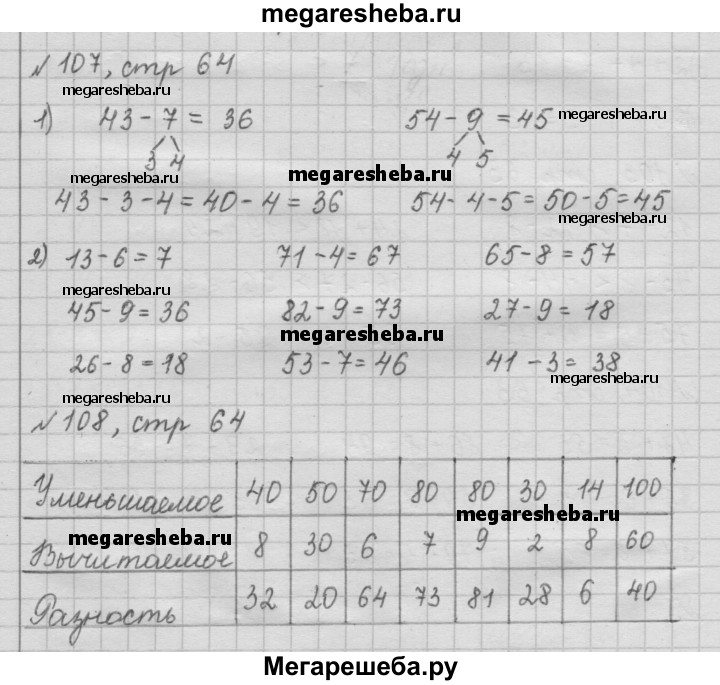 megaresheba.ru
№ 107, стр 64
megaresheba.ru
1) 43 - 7 = 36 54 - 9 = 45 megaresheba.ru
3 4 4 5
megaresheba.ru megaresheba.ru
43 - 3 - 4 = 40 - 4 = 36 54 - 4 - 5 = 50 - 5 = 45
megaresheba.ru
2) 13 - 6 = 7 71 - 4 = 67 65 - 8 = 57
megaresheba.ru
45 - 9 = 36 82 - 9 = 73 27 - 9 = 18
megaresheba.ru
26 - 8 = 18 53 - 7 = 46 41 - 3 = 38
megaresheba.ru
megaresheba.ru
№ 108, стр 64
Уменьшаемое 40 50 70 80 80 30 14 100
megaresheba.ru
megaresheba.ru
Вычитаемое 8 30 6 7 9 2 8 60
Разность 32 20 64 73 81 28 6 40
Мегарешеба.ру